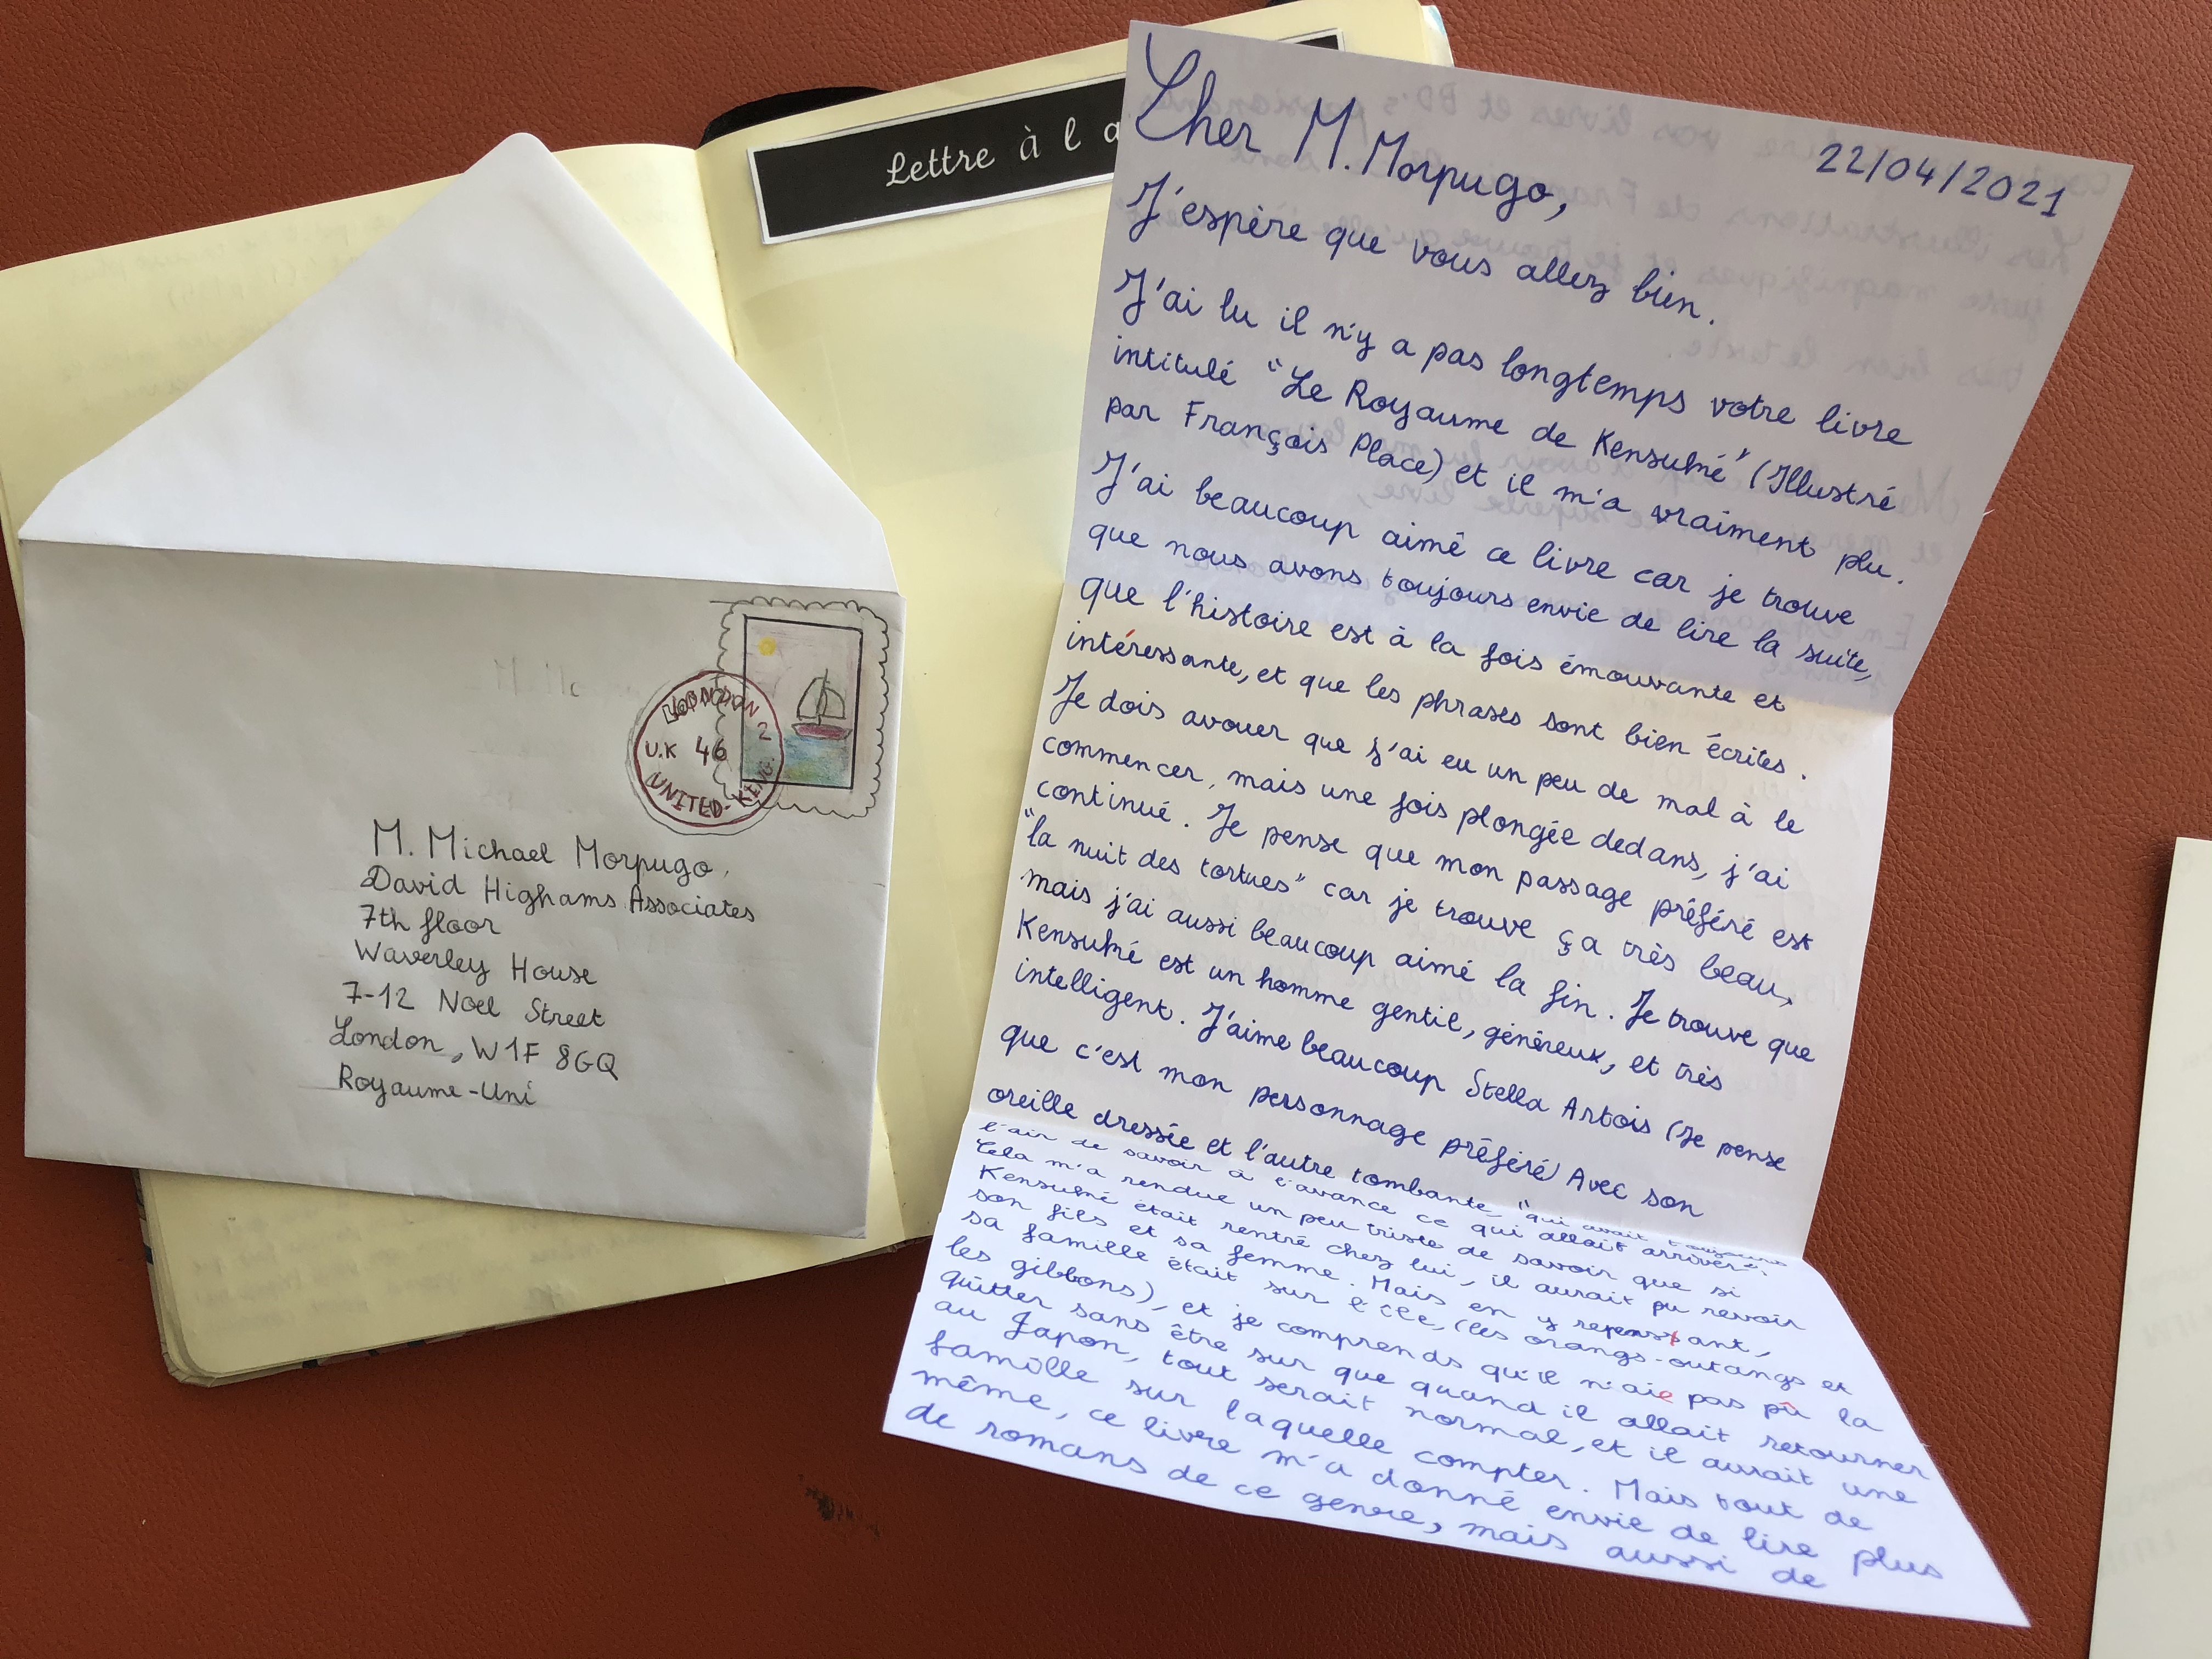 Lettre à l a
Cher M. Morpugo,
22/04/2021
J'espère que vous allez bien.
J'ai lu il n'y a pas longtemps votre livre
intitulé "Le Royaume de Kensuké" (Illustré
par François Place) et il m'a vraiment plu.
J'ai beaucoup aimé ce livre car je trouve
que nous avons toujours envie de lire la suite,
que l'histoire est à la fois émouvante et
intéressante, et que les phrases sont bien écrites.
Je dois avouer que j'ai eu un peu de mal à le
commencer, mais une fois plongée dedans, j'ai
continué. Je pense que mon passage préféré est
"la nuit des tortues" car je trouve ça très beau,
mais j'ai aussi beaucoup aimé la fin. Je trouve que
Kensuké est un homme gentil, généreux, et très
intelligent. J'aime beaucoup Stella Artois (je pense
que c'est mon personnage préféré) Avec son
oreille dressée et l'autre tombante, "qui avait toujours
l'air de savoir à l'avance ce qui allait arriver".
Cela m'a rendue un peu triste de savoir que si
Kensuké était rentré chez lui, il aurait pu revoir
son fils et sa femme. Mais en y repensant,
sa famille était sur l'île, (les orangs-outangs et
les gibbons), et je comprends qu'il n'aie pas pû la
quitter sans être sur que quand il allait retourner
au Japon, tout serait normal, et il aurait une
famille sur laquelle compter. Mais tout de
même, ce livre m'a donné envie de lire plus
de romans de ce genre, mais aussi de
LONDON 2
U.K 46
UNITED-KING.
M. Michael Morpugo,
David Highams Associates
7th floor
Waverley House
7-12 Noel Street
London, W1F 8GQ
Royaume-Uni